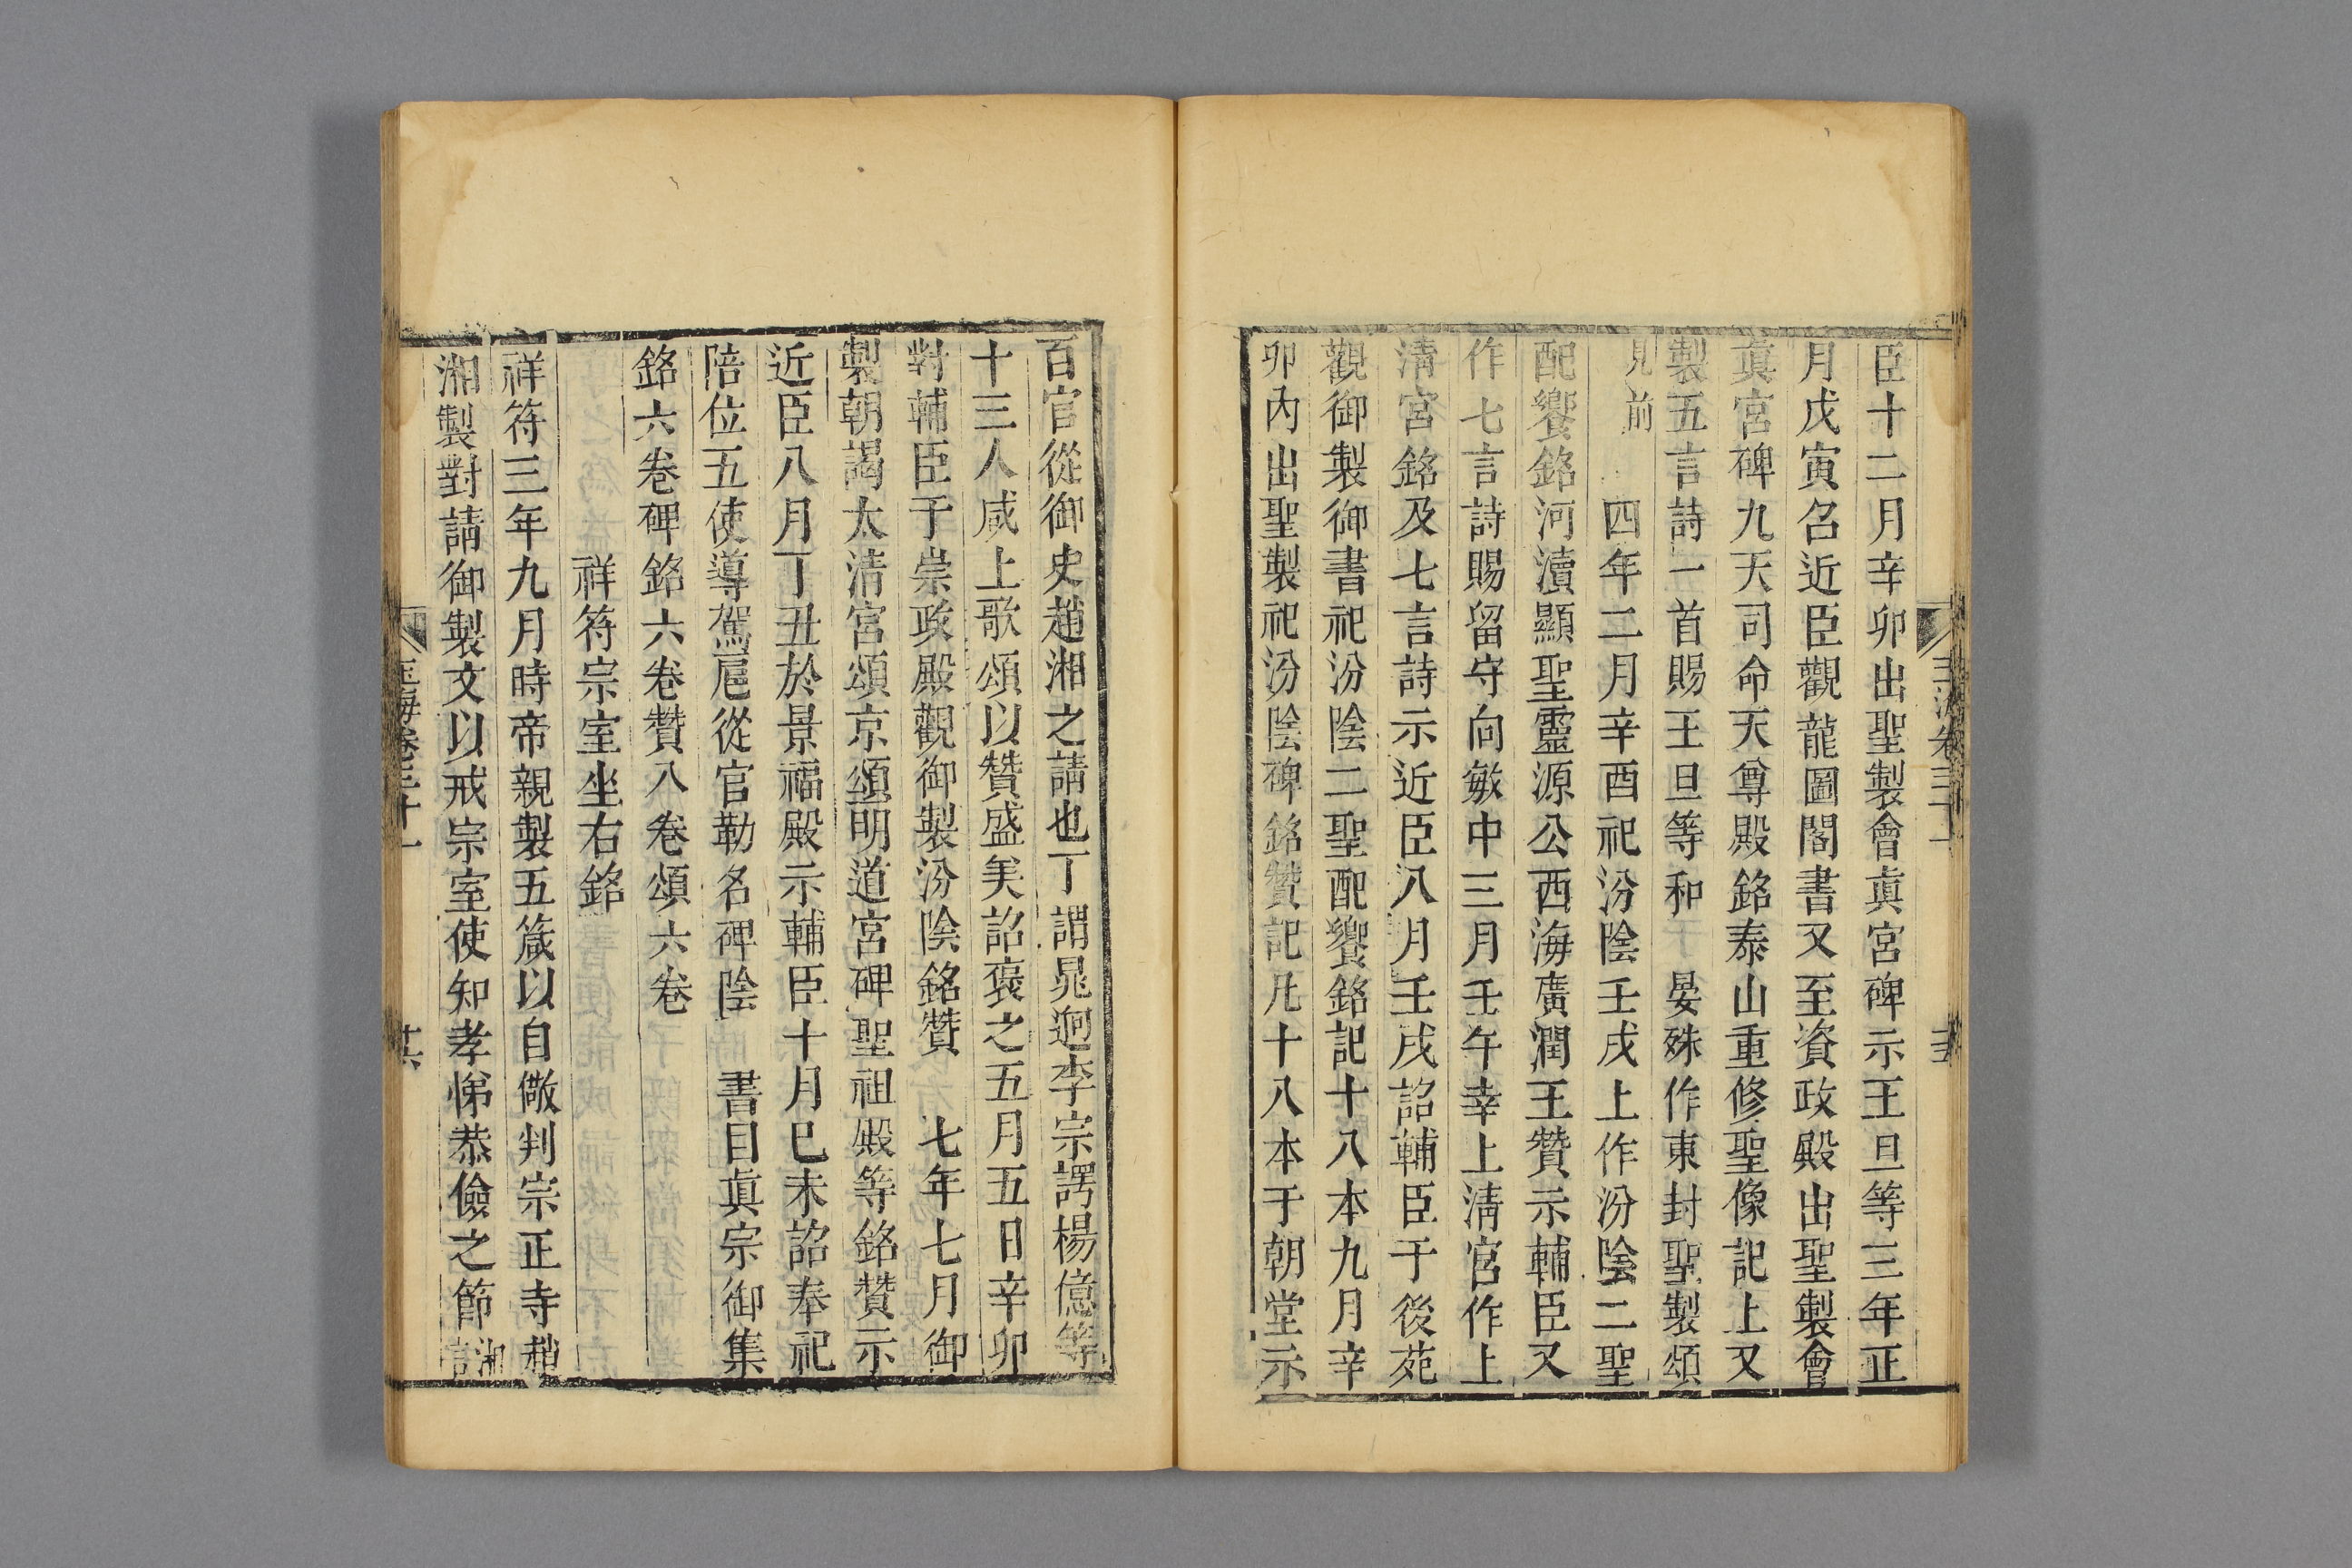 臣十二月辛卯出聖製會真宮碑示王旦等三年正
月戊寅召近臣觀龍圖閣書又至資政殿出聖製會
真宮碑九天司命天尊殿銘泰山重修聖像記上又
製五言詩一首賜王旦等和于晏殊作東封聖製頌
見前 四年二月辛酉祀汾陰壬戌上作汾陰二聖
配饗銘河瀆顯聖靈源公西海廣潤王贊示輔臣又
作七言詩賜留守向敏中三月壬午幸上清宮作上
清宮銘及七言詩示近臣八月壬戌詔輔臣于後苑
觀御製御書祀汾陰二聖配饗銘記十八本九月辛
卯內出聖製祀汾陰碑銘贊記凡十八本于朝堂示
百官從御史趙湘之請也丁謂晁迥李宗諤楊億等
十三人咸上歌頌以贊盛美詔褒之五月五日辛卯
對輔臣于崇政殿觀御製汾陰銘贊 七年七月御
製朝謁太清宮頌京頌明道宮碑聖祖殿等銘贊示
近臣八月丁丑於景福殿示輔臣十月己未詔奉祀
陪位五使導駕扈從官勒名碑陰 書目真宗御集
銘六卷碑銘六卷贊八卷頌六卷
祥符宗室坐右銘
祥符三年九月時帝親製五箴以自儆判宗正寺趙
湘製對請御製文以戒宗室使知孝悌恭儉之節湘言
玉海卷三十一
十六